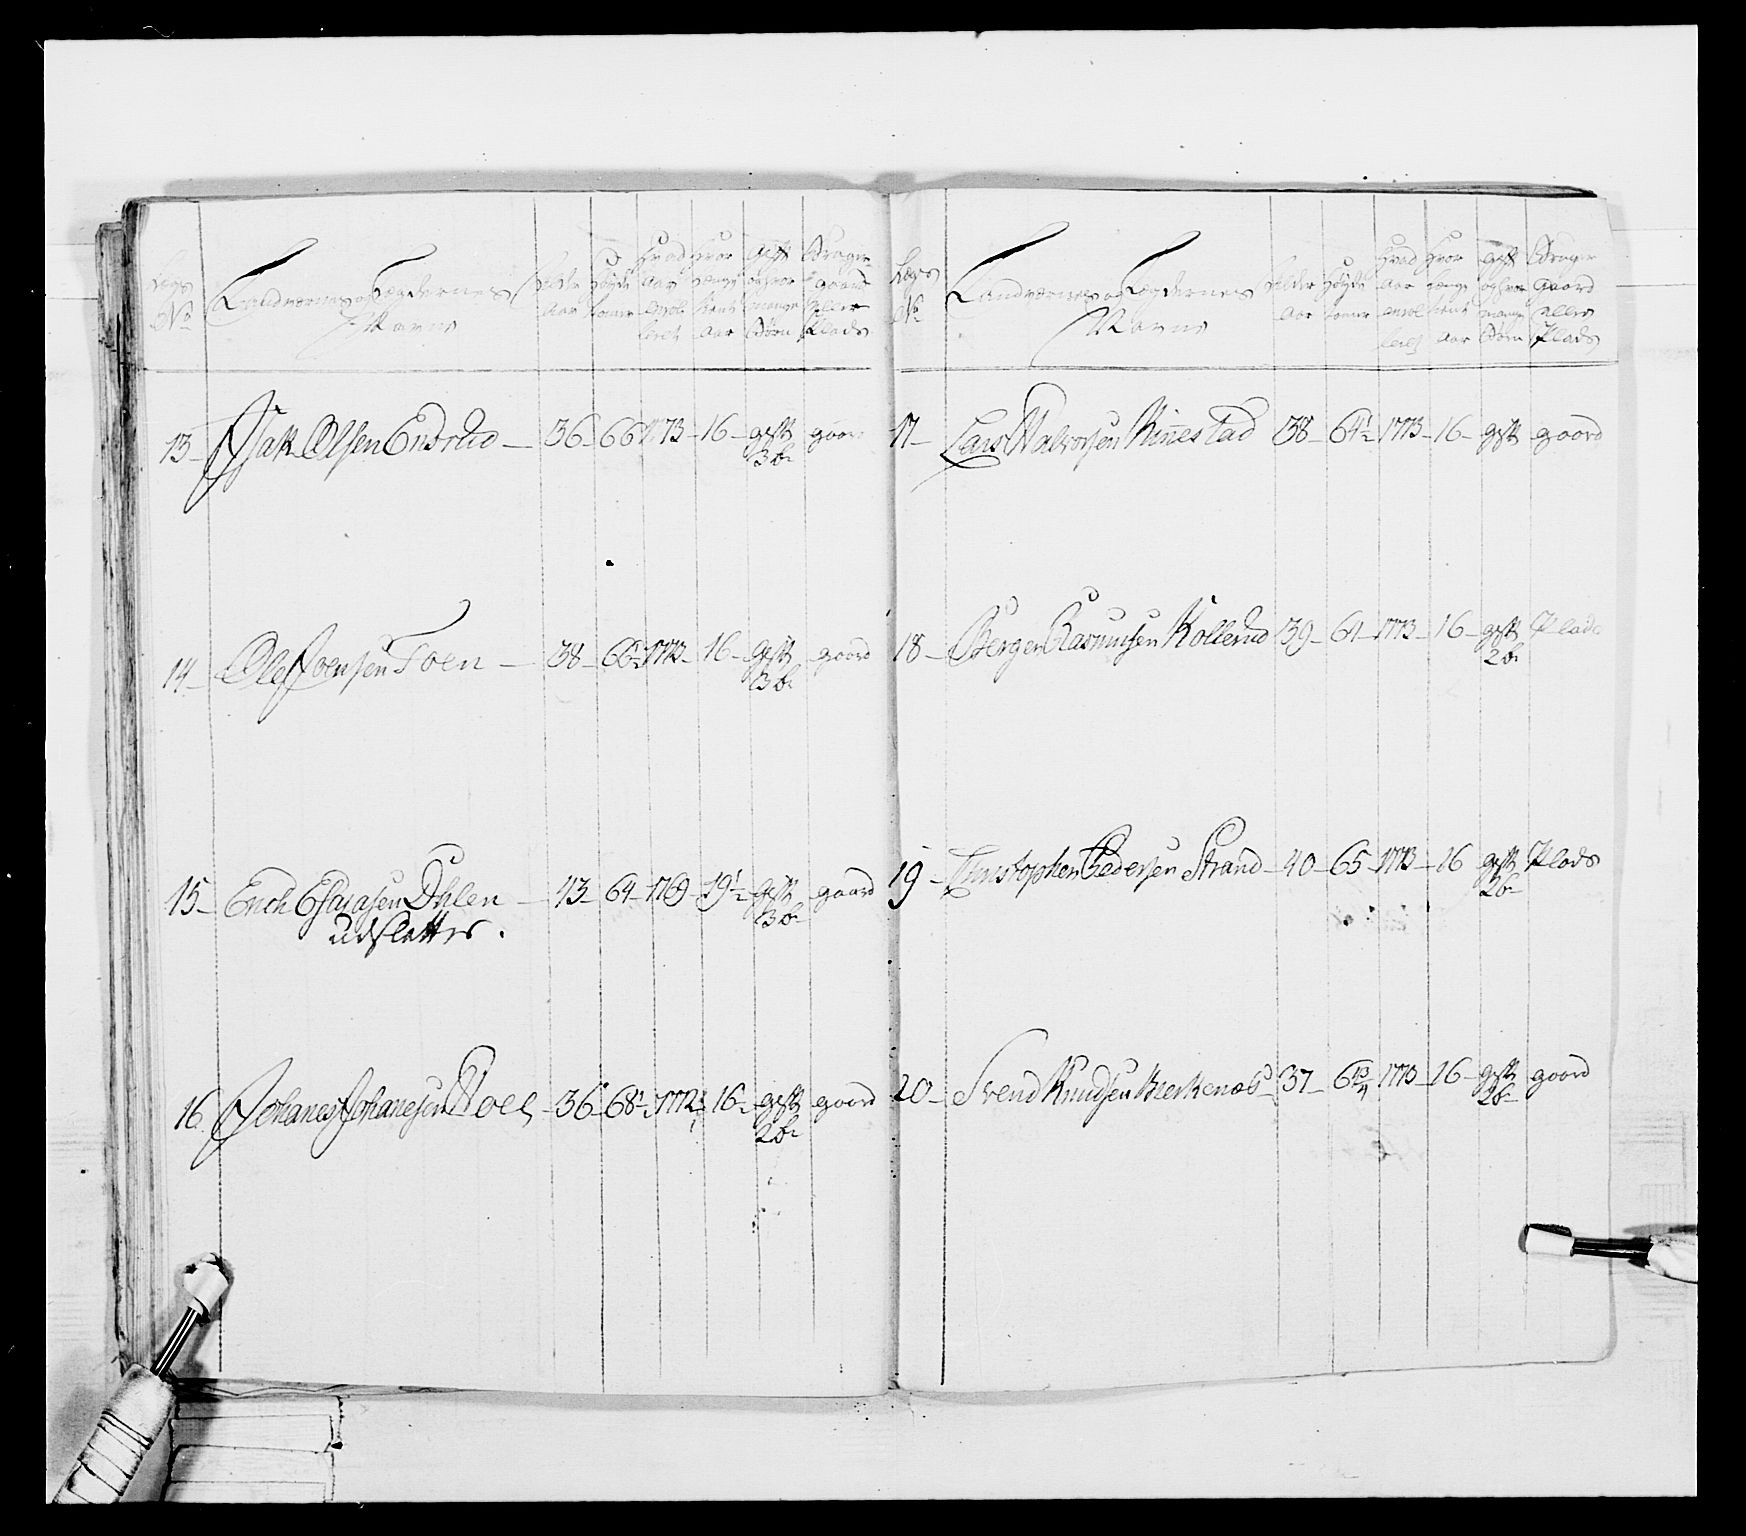 Legs No
Landværnes og Legdernes Navne
Alder Aar
Høyde tomer
Hvad Aar enrol leret
Hvor længe tient Aar
gift og hvor mange Børn
Bruger gaard eller Plads
13 – Isak Olsen Endrud – 36 – 66 1/2 73 – 16 – gift gaard
3 b:
14 – Ole Joensen Toen – 38 – 66 1/2 1773 – 16 – gift gaard
3 b:
15 – Erich Olsen Dhlen – 43 – 64 – 1769 – 19 1/2 – gift gaard
udslettes. 3 b:
16 Johanes Johanesen Noes – 36 – 68 1/2 1772 1/2 16 – gift gaard
2 b:
Legs No
Landværnes og Legdernes Navne
Alder Aar
Høyde tomer
Hvad Aar enrol leret
Hvor længe tient Aar
gift og hvor mange Børn
Bruger Gaard eller Plads
17 – Lars Halvorsen Kinestad 38 – 64 1/2 1773 – 16 – gift gaard
18 – Bergen Rasmusen Kollerud 39 – 61 – 1773 – 16 – gift Plads
2 b:
19 – Christophen Pedersen Strand – 40 – 65 – 1773 – 16 gift Plads
2 b:
20 – Svend Knudsen Bierkenæs – 37 – 6 1773 – 16 – gift gaard
2 b: